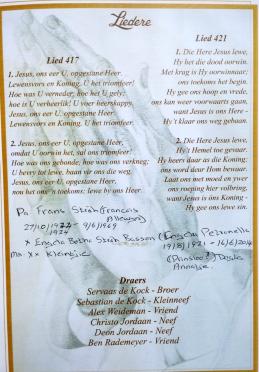 Liedere
Lied 417
1. Jesus, ons eer U, opgestane Heer.
Lewensvors en Koning, U het triomfeer!
Hoe was U verneder, hoe het U gely;
hoe is U verheerlik! U voer heerskappy.
Jesus, ons eer U, opgestane Heer,
Lewensvors en Koning, U het triomfeer.
2. Jesus, ons eer U, opgestane Heer,
omdat U oorwin het, sal ons triomfeer!
Hoe was ons gebonde, hoe was ons verkneg;
U bevry tot lewe, baan vir ons die weg.
Jesus, ons eer U, opgestane Heer,
nou het ons 'n toekoms: lewe by ons Heer.
Lied 421
1. Die Here Jesus lewe,
Hy het die dood oorwin.
Met krag is Hy oorwinnaar;
ons toekoms het begin.
Hy gee ons hoop en vrede,
ons kan weer voorwaarts gaan,
want Jesus is ons Here -
Hy't klaar ons weg gebaan.
2. Die Here Jesus lewe,
Hy't Hemel toe gevaar.
Hy heers daar as die Koning;
ons word daar Hom bewaar.
Laat ons met moed en ywer
ons roeping hier volbring,
want Jesus is ons Koning -
Hy gee ons lewe sin.
Pa Frans Stroh (Francois
27/10/1922 - 9/6/1969
1924
x Engela Botha Stroh Sasson (Engela Petronella
19/8/1921 - 16/6/2014
Ma. xx Kleintjie
Draers
Servaas de Kock - Broer
Sebastian de Kock - Kleinneef
Alex Weideman - Vriend
Christo Jordaan - Neef
Deon Jordaan - Neef
Ben Rademeyer - Vriend